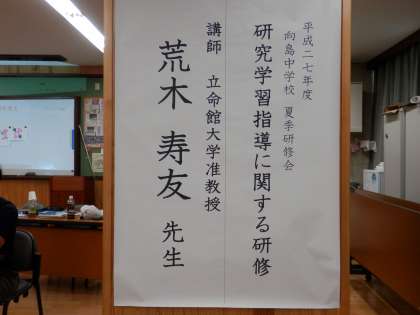 平成二七年度
向島中学校 夏季研修会
研究学習指導に関する研修
講師 立命館大学准教授
荒木 寿友 先生